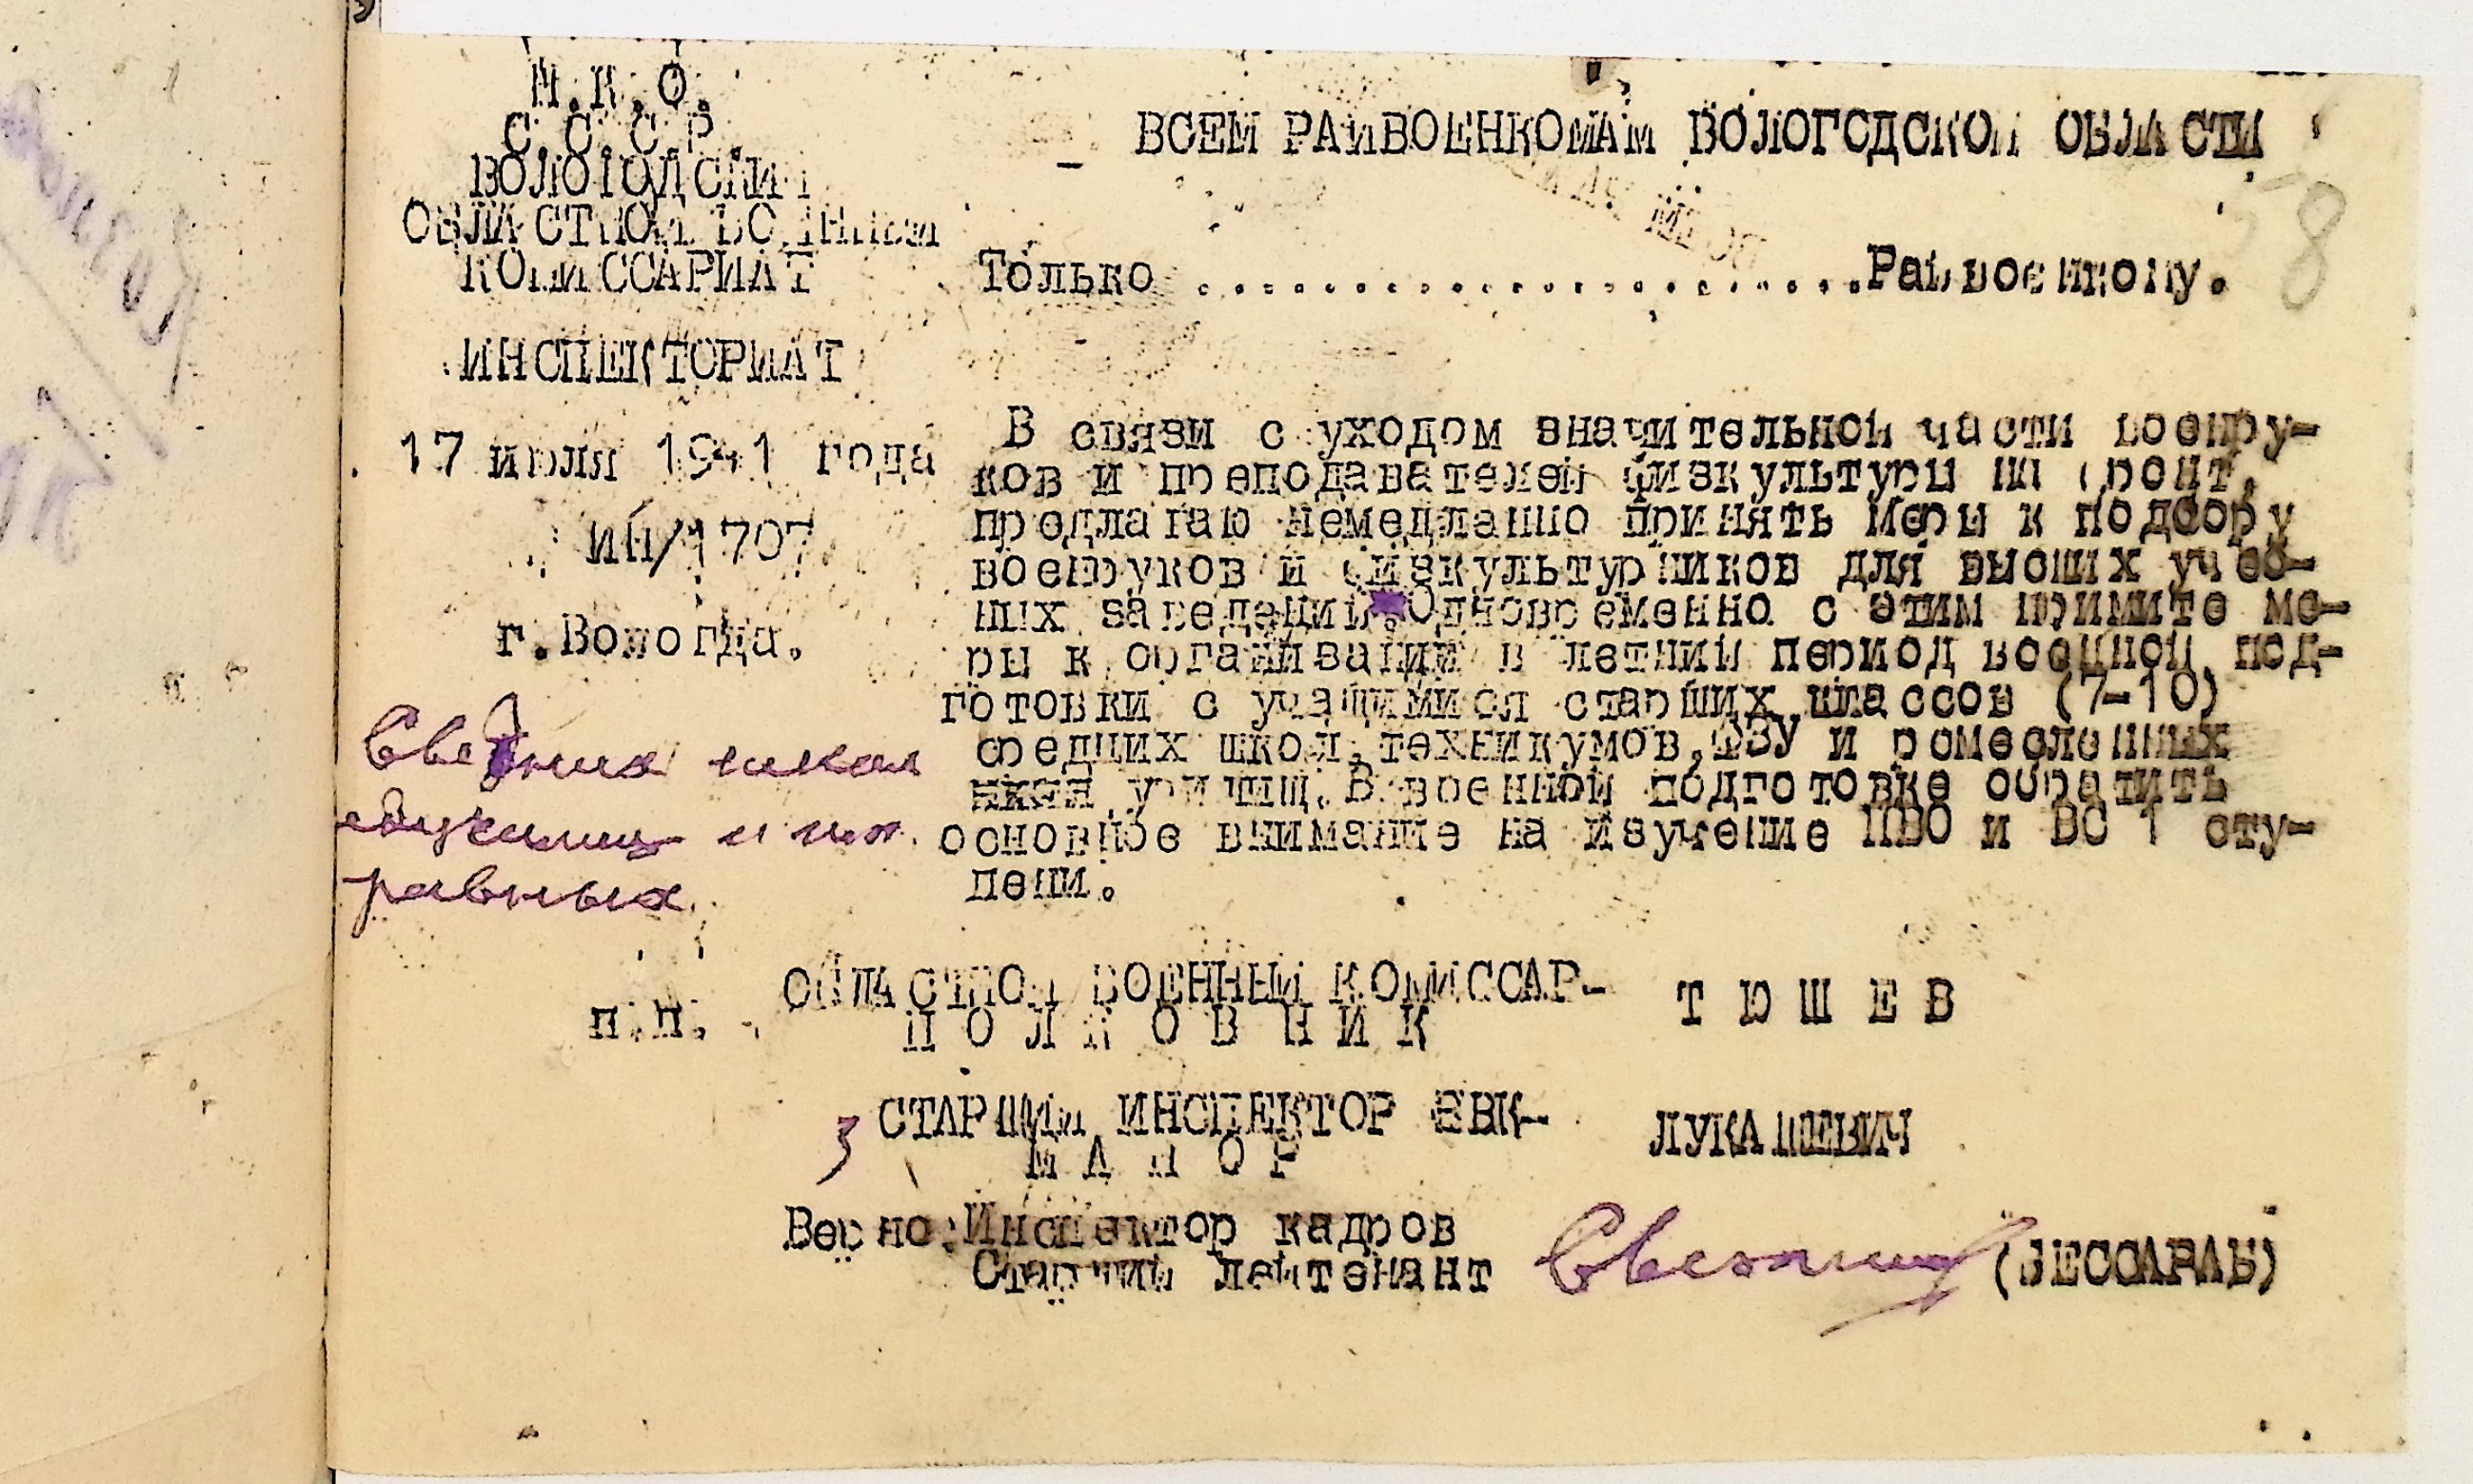 Н.К.О.
С.С.С.Р.
ВОЛОГОДСКИЙ
ОБЛАСТНОЙ ВОЕННЫЙ
КОМИССАРИАТ
ИНСПЕКТОРИАТ
17 июля 1941 года
ИН/1707
г.Вологда.
ВСЕМ РАЙВОЕНКОМАМ ВОЛОГОДСКОЙ ОБЛАСТИ
58
Только ........................Райвоенкому.
В связи с уходом значительной части военру-
ков и преподавателей физкультуры на фронт,
предлагаю немедленно принять меры к подбору
военруков и физкультурников для высших учеб-
ных заведений. Одновременно с этим примите ме-
ры к организации в летний период военной под-
готовки с учащимися старших классов (7-10)
средних школ, техникумов, ФЗУ и ремесленных
училищ. В военной подготовке обратить
основное внимание на изучение ПВО и ВС 1 сту-
пени.
средних школ
и
равных
п.п. ОБЛАСТНОЙ ВОЕННЫЙ КОМИССАР-
ПОЛКОВНИК
ТЮШЕВ
СТАРШИЙ ИНСПЕКТОР ВВК-
МАЙОР
ЛУКАШЕВИЧ
Верно: Инспектор кадров
Старший лейтенант (БЕССАРАБ)